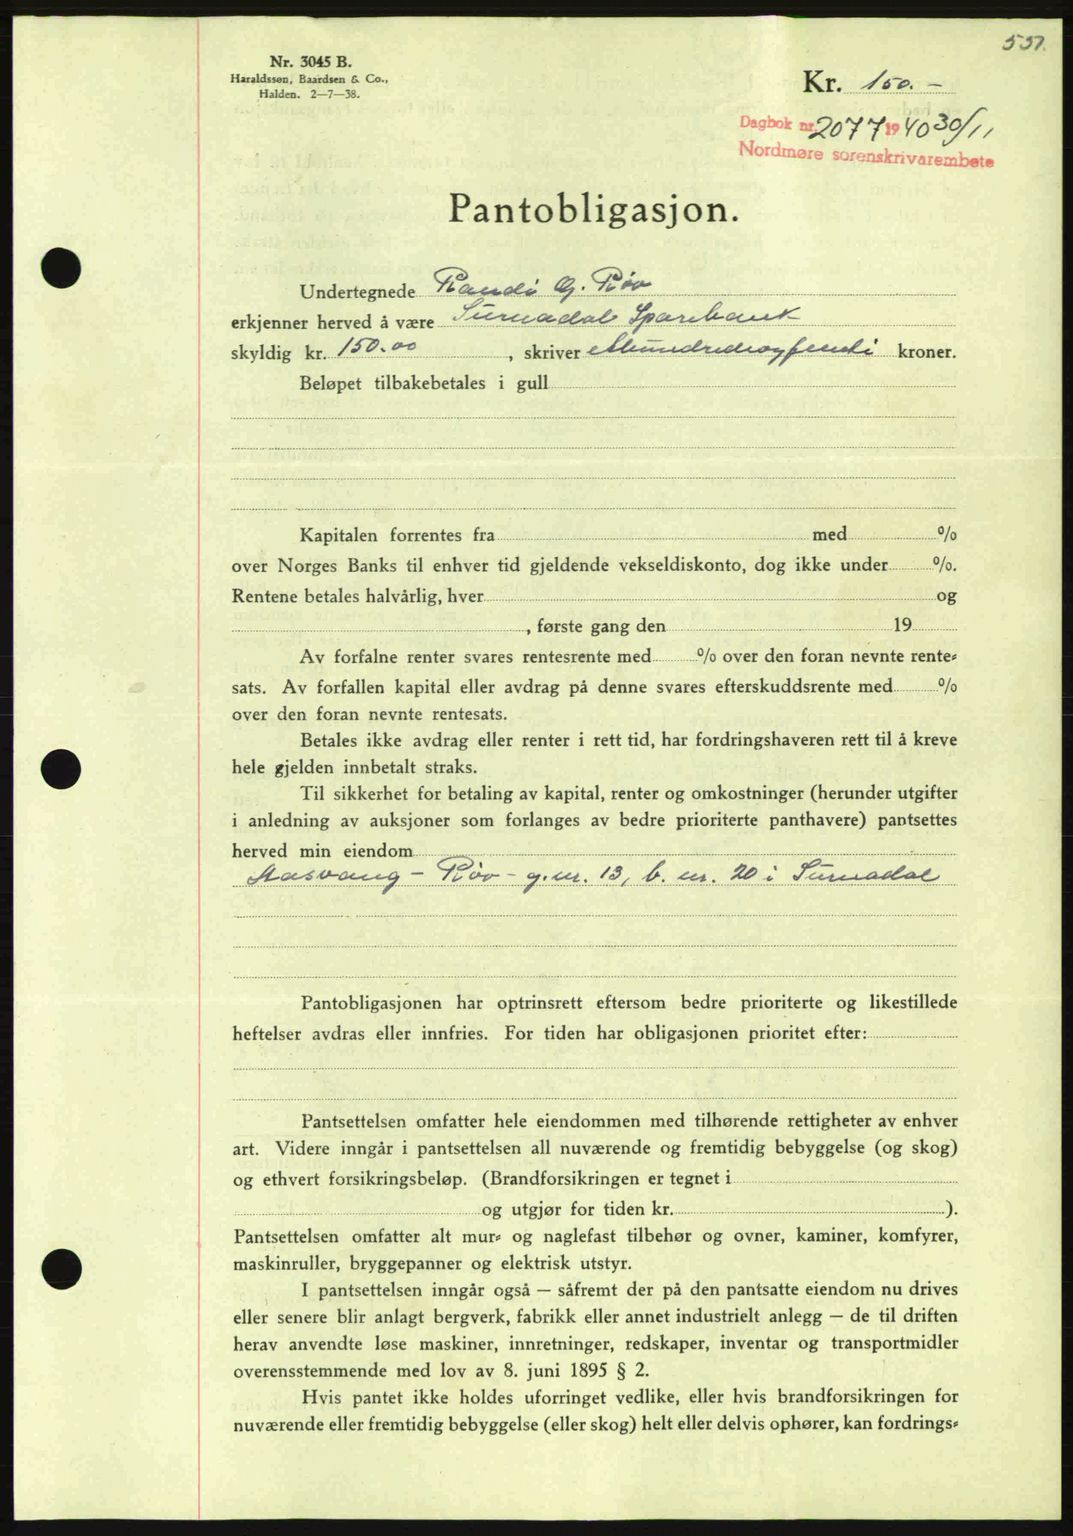 557.
Nr. 3045 B.
Haraldssen, Baardsen & Co.,
Halden. 2—7—38.
Kr. 150.—
Dagbok nr. 2077 1940 30/11
Nordmøre sorenskrivarembete
Pantobligasjon.
Undertegnede Randi G. Røv
erkjenner herved å være Surnadal Sparebank
skyldig kr. 150.00, skriver etthundredeogfemti kroner.
Beløpet tilbakebetales i gull
Kapitalen forrentes fra med %
over Norges Banks til enhver tid gjeldende vekseldiskonto, dog ikke under %.
Rentene betales halvårlig, hver og
, første gang den 19
Av forfalne renter svares rentesrente med % over den foran nevnte rente-
sats. Av forfallen kapital eller avdrag på denne svares efterskuddsrente med %
over den foran nevnte rentesats.
Betales ikke avdrag eller renter i rett tid, har fordringshaveren rett til å kreve
hele gjelden innbetalt straks.
Til sikkerhet for betaling av kapital, renter og omkostninger (herunder utgifter
i anledning av auksjoner som forlanges av bedre prioriterte panthavere) pantsettes
herved min eiendom
Aasvang - Røv - g.nr. 13, b. nr. 20 i Surnadal
Pantobligasjonen har optrinsrett eftersom bedre prioriterte og likestillede
heftelser avdras eller innfries. For tiden har obligasjonen prioritet efter:
Pantsettelsen omfatter hele eiendommen med tilhørende rettigheter av enhver
art. Videre inngår i pantsettelsen all nuværende og fremtidig bebyggelse (og skog)
og ethvert forsikringsbeløp. (Brandforsikringen er tegnet i
og utgjør for tiden kr. ).
Pantsettelsen omfatter alt mur- og naglefast tilbehør og ovner, kaminer, komfyrer,
maskinruller, bryggepanner og elektrisk utstyr.
I pantsettelsen inngår også — såfremt der på den pantsatte eiendom nu drives
eller senere blir anlagt bergverk, fabrikk eller annet industrielt anlegg — de til driften
herav anvendte løse maskiner, innretninger, redskaper, inventar og transportmidler
overensstemmende med lov av 8. juni 1895 § 2.
Hvis pantet ikke holdes uforringet vedlike, eller hvis brandforsikringen for
nuværende eller fremtidig bebyggelse (eller skog) helt eller delvis ophører, kan fordrings-